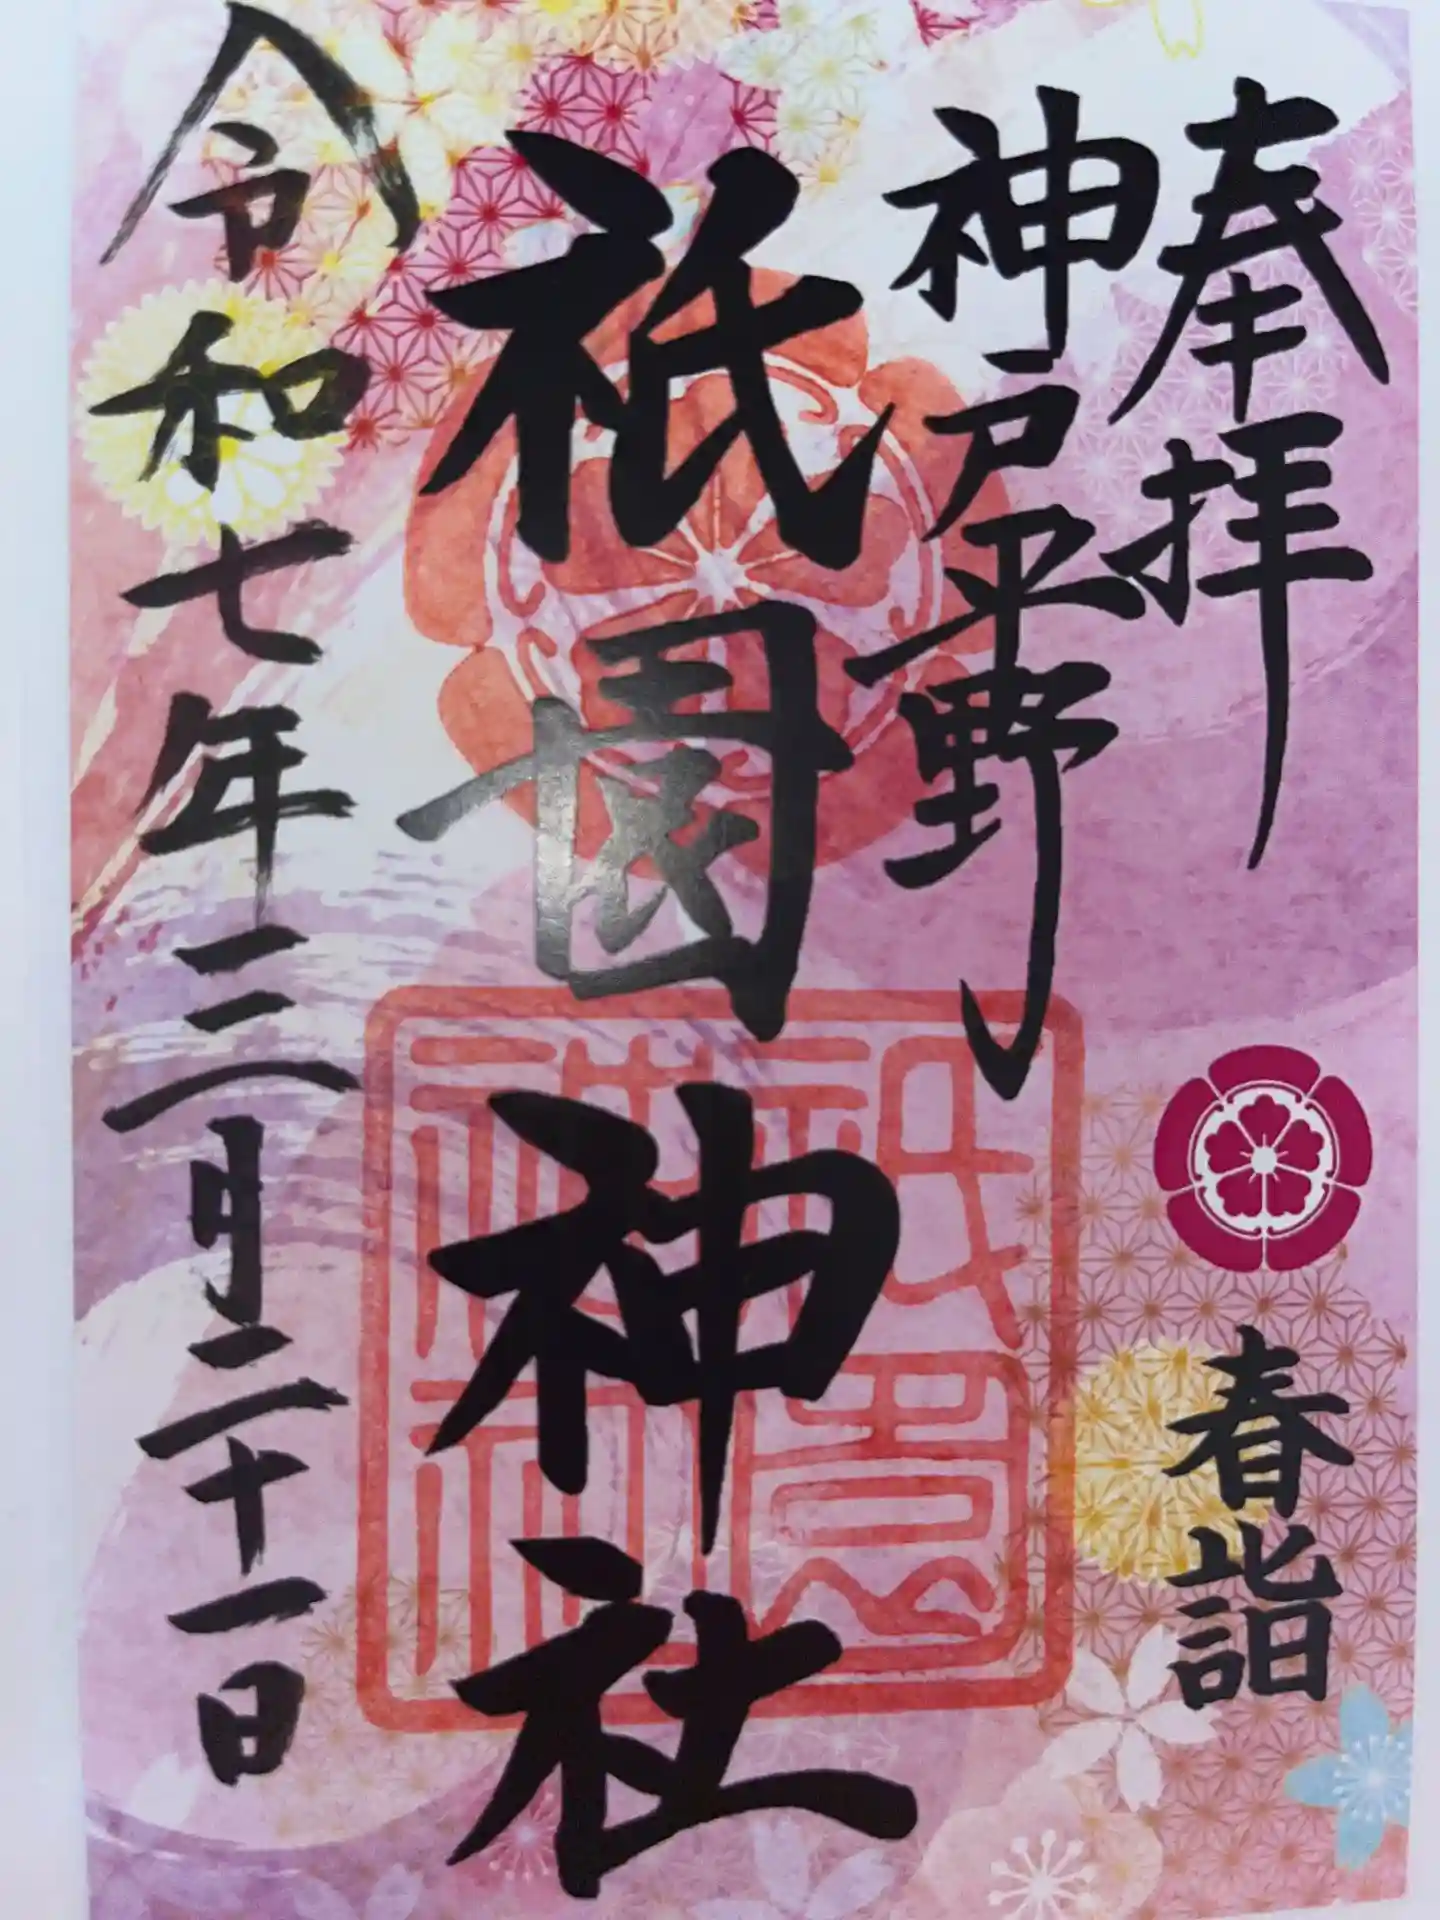 奉拝
春詣
神戸平野
祇園神社
令和七年三月二十一日
祇園
神社